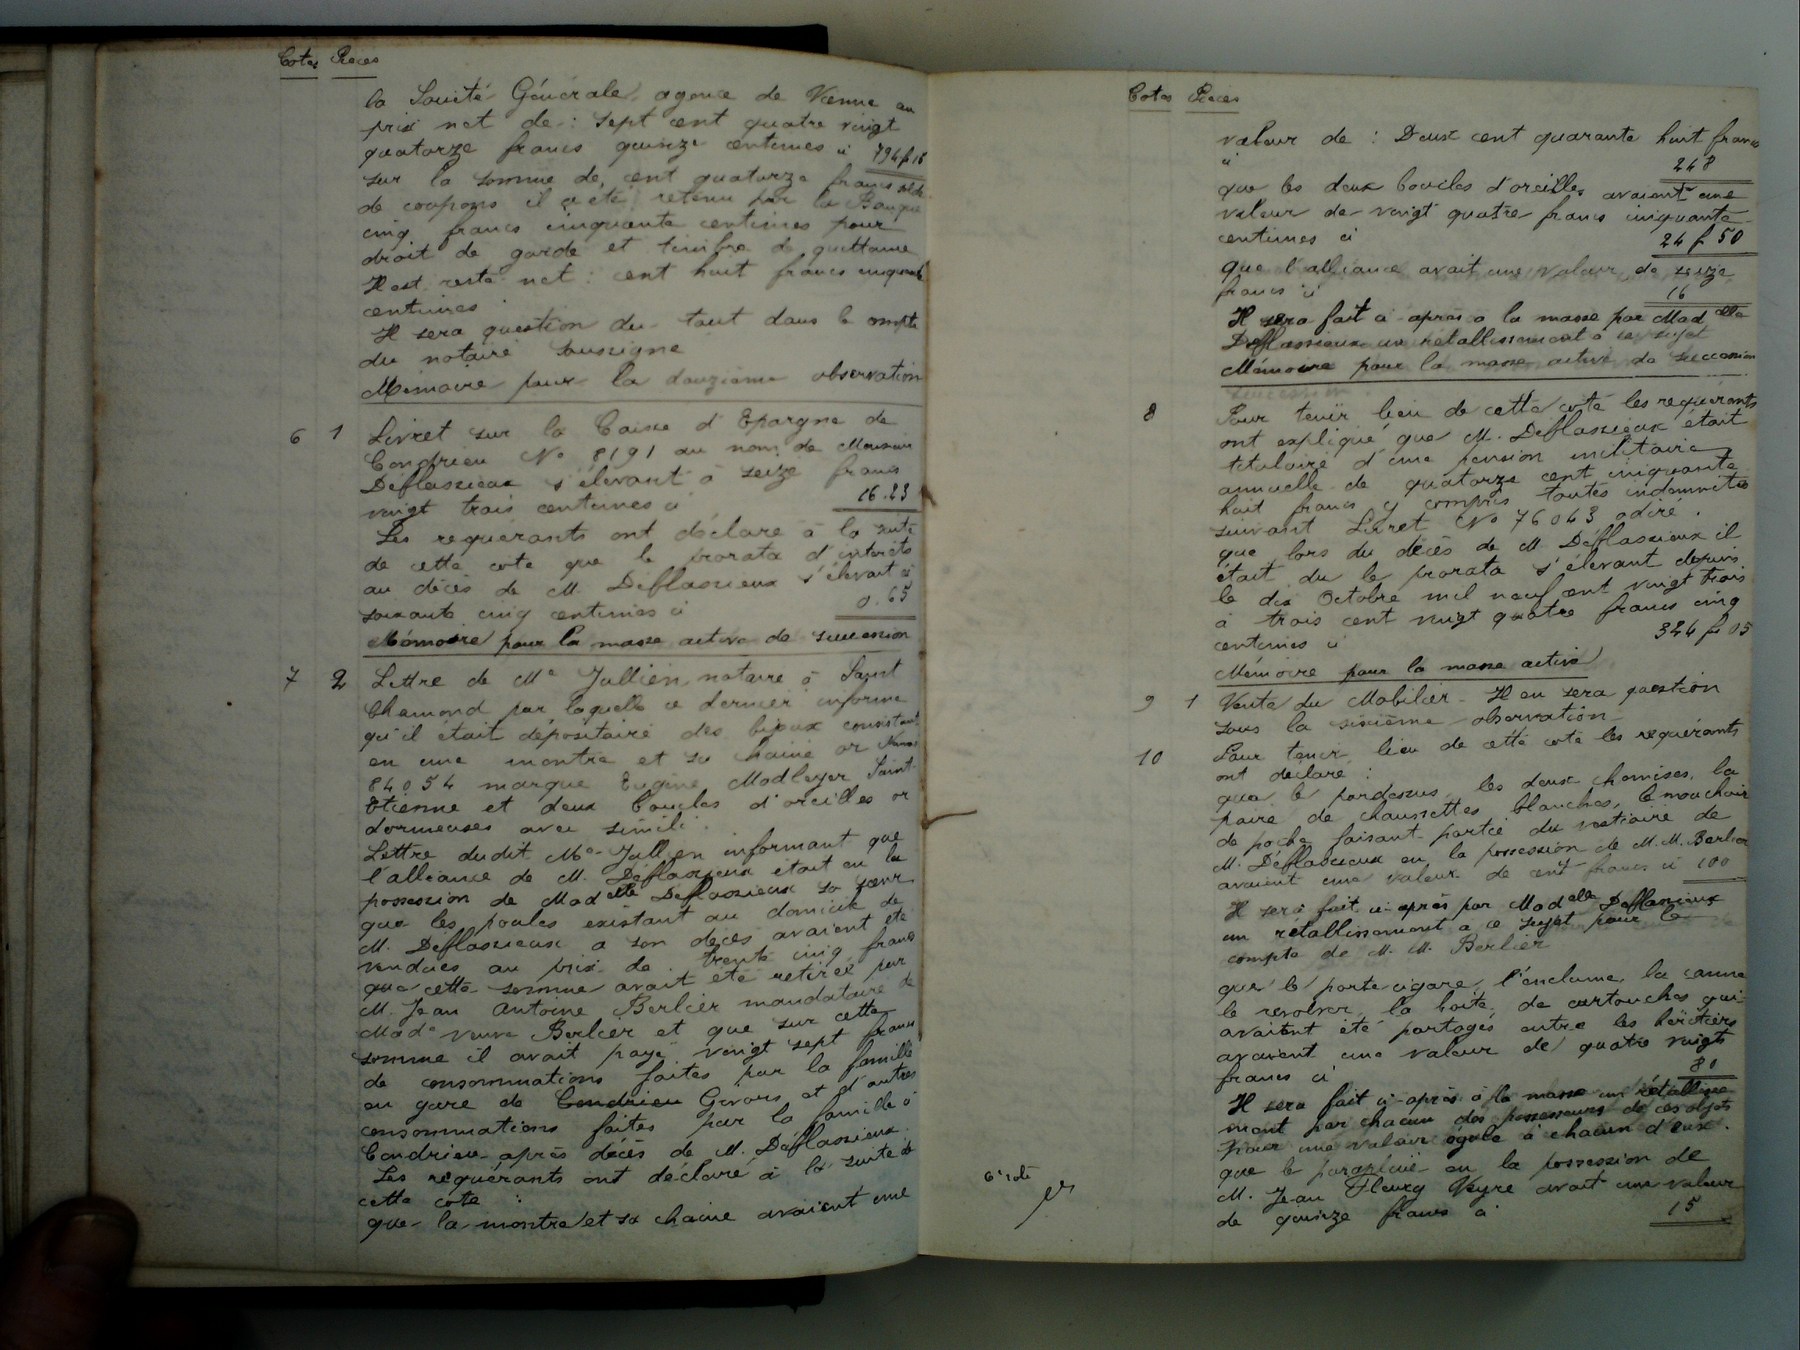 Cotes Pièces
la Société Générale, agence de Vienne au
prix net de : Sept cent quatre vingt
quatorze francs quinze centimes ci 794 f 15
sur la somme de, cent quatorze francs solde
de coupons il a été retenu par la Banque
cinq francs cinquante centimes pour
droit de garde et timbre de quittance
Il est resté net : cent huit francs cinquante
centimes
Il sera question du tout dans le compte
du notaire soussigné
Mémoire pour la douzième observation
6 1 Livret sur la Caisse d'Epargne de
Condrieu No 8191 au nom de Monsieur
Deflassieux s'élevant à seize francs
vingt trois centimes ci 16.23
Les requérants ont déclaré à la suite
de cette cote que le prorata d'intérêts
au décès de M. Deflassieux s'élevait à
soixante cinq centimes ci 0.65
Mémoire pour la masse active de succession
7 2 Lettre de Me Jullien notaire à Saint
Chamond par laquelle ce dernier informe
qu'il était dépositaire des bijoux consistant
en une montre et sa chaine or
84054 marque Eugène Saint-
Etienne et deux boucles d'oreilles or
dormeuses avec simili.
Lettre dudit Me Jullien informant que
l'alliance de M. Deflassieux était en la
possession de Madelle Deflassieux sa sœur
que les poules existant au domicile de
M. Deflassieux à son décès avaient été
vendues au prix de trente cinq francs
que cette somme avait été retirée par
M. Jean Antoine Berlier mandataire de
Made veuve Berlier et que sur cette
somme il avait payé vingt sept francs
de consommations faites par la famille
en gare de Condrieu Givors et d'autres
consommations faites par la famille à
Condrieu après décès de M. Deflassieux.
Les requérants ont déclaré à la suite de
cette cote :
que la montre et sa chaine avaient une
Cotes Pièces
valeur de : Deux cent quarante huit francs
ci 248
que les deux boucles d'oreilles avaient une
valeur de vingt quatre francs cinquante
centimes ci 24 f 50
que l'alliance avait une valeur de seize
francs ci 16
Il sera fait ci-après à la masse par Madelle
Deflassieux un rétablissement à ce sujet
Mémoire pour la masse active de succession
succession
8 Pour tenir lieu de cette cote les requérants
ont expliqué que M. Deflassieux était
titulaire d'une pension militaire
annuelle de quatorze cent cinquante
huit francs y compris toutes indemnités
suivant Livret No 76043 adiré.
que lors du décès de M. Deflassieux il
était du le prorata s'élevant depuis
le dix Octobre mil neuf cent vingt trois
à trois cent vingt quatre francs cinq
centimes ci 324 fr 05
Mémoire pour la masse active
9 1 Vente du Mobilier - Il en sera question
sous la sixième observation
10 Pour tenir lieu de cette cote les requérants
ont déclaré :
que le pardessus, les deux chemises, la
paire de chaussettes blanches, le mouchoir
de poche faisant partie du vestiaire de
M. Deflassieux en la possession de M.M. Berlier
avaient une valeur de cent francs ci 100
Il sera fait ci-après par Madelle Deflassieux
un rétablissement à ce sujet pour le
compte de M. M. Berlier
que le porte cigare, l'enclume, la canne
le revolver, la boite de cartouches qui
avaient été partagés entre les héritiers
avaient une valeur de quatre vingts
francs ci 80
Il sera fait ci-après à la masse un rétablisse
ment par chacun des possesseurs de ces objets
pour une valeur égale à chacun d'eux.
que le parapluie en la possession de
M. Jean Fleury Veyre avait une valeur
de quinze francs ci 15
6e rôle